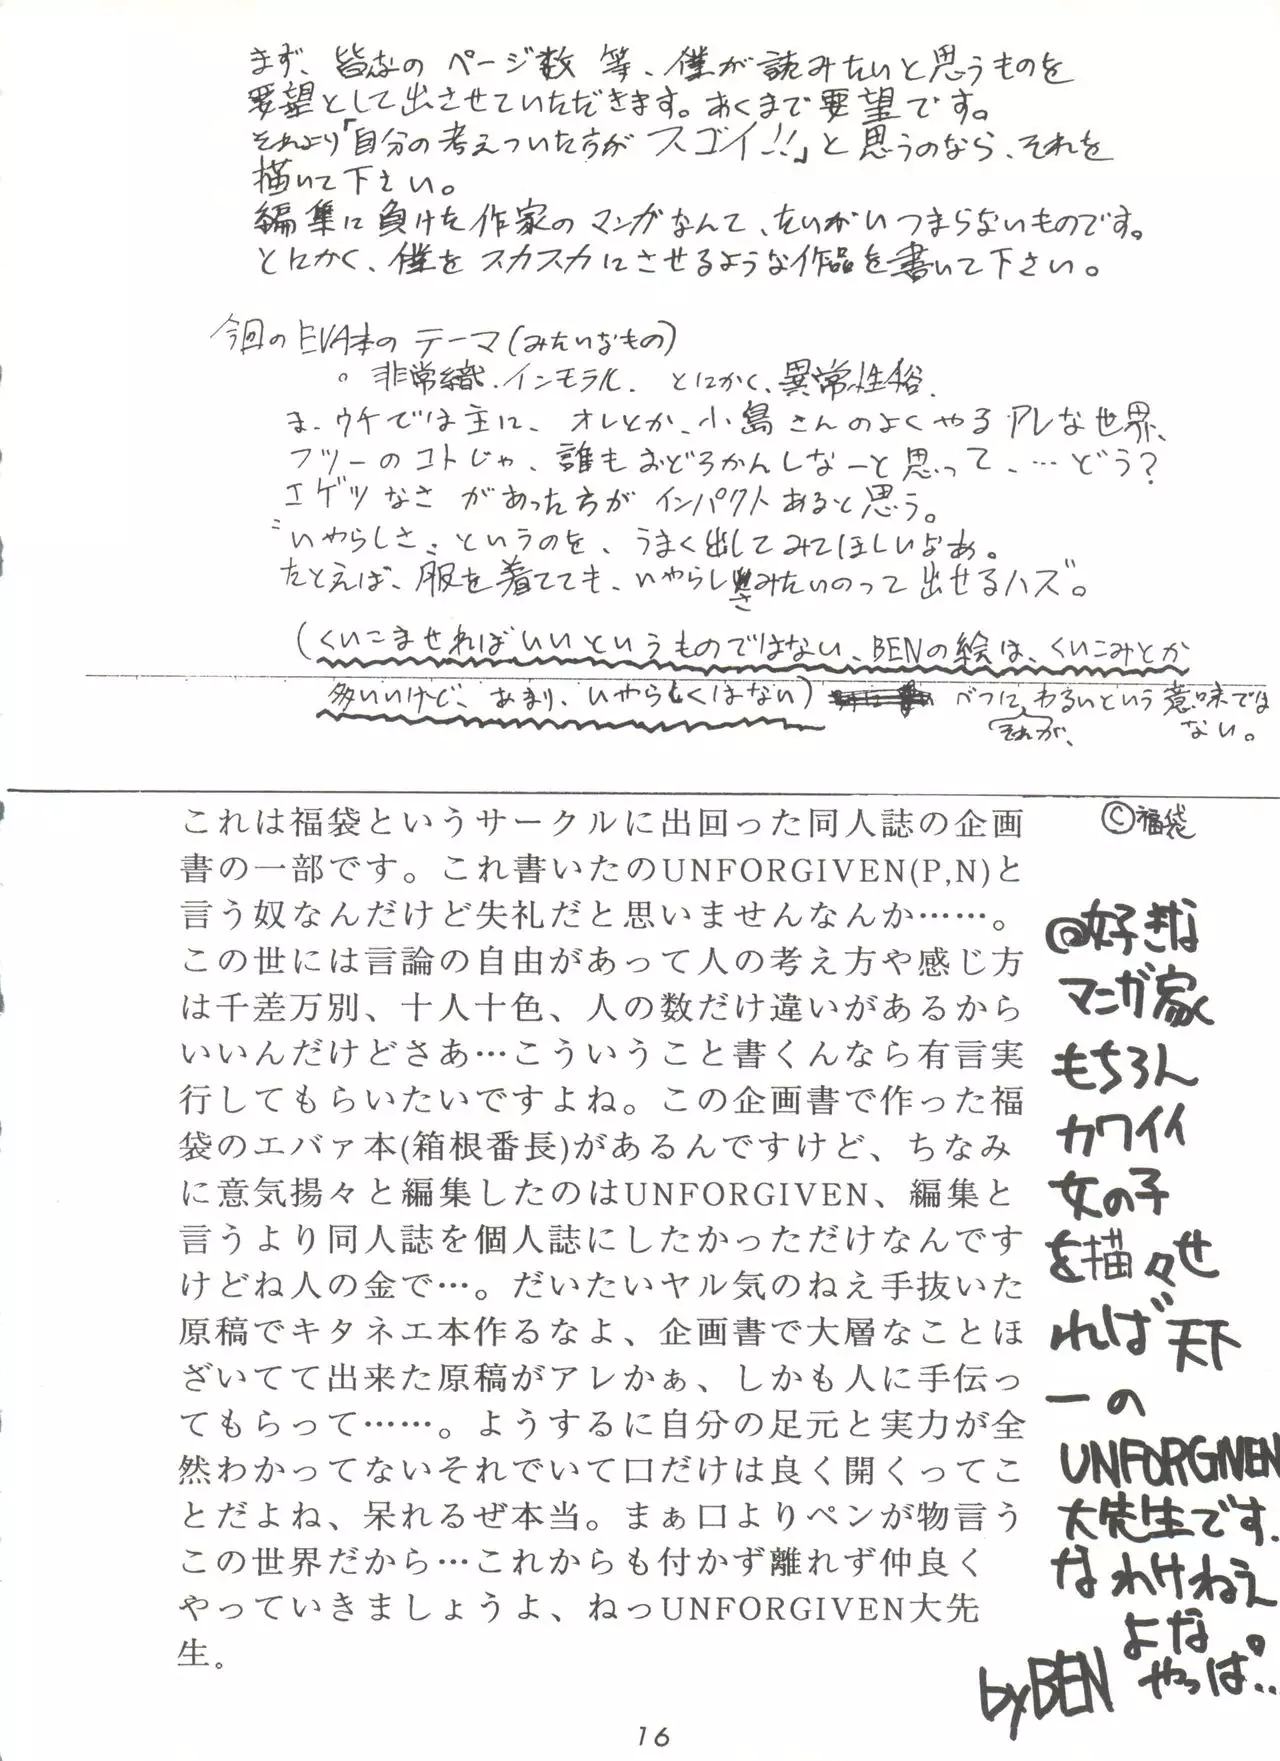 まず、皆なの ページ数 等、僕が読みたいと思うものを
要望として出させていただきます。あくまで要望です。
それより「自分の考えついた方が スゴイ!!」と思うのなら、それを
描いて下さい。
編集に負けた作家のマンガなんて、たいがいつまらないものです。
とにかく、僕をスカスカにさせるような作品を書いて下さい。
今回のEVA本のテーマ(みたいなもの)
。非常織.インモラル. とにかく、異常性俗.
ま.ウチでは主に、オレとか、小島さんのよくやるアレな世界、
フツーのコトじゃ、誰もおどろかんしなーと思って、…どう?
エゲツなさ があった方が インパクトあると思う。
"いやらしさ"というのを、うまく出してみてほしいなあ。
たとえば、服を着てても、いやらしさみたいのって出せるハズ。
(くいこませればいいというものではない、BENの絵は、くいこみとか
多いいけど、あまり、いやらしくはない) べつに、それが、わるいという意味では
ない。
これは福袋というサークルに出回った同人誌の企画
書の一部です。これ書いたのUNFORGIVEN(P,N)と
言う奴なんだけど失礼だと思いませんなんか……。
この世には言論の自由があって人の考え方や感じ方
は千差万別、十人十色、人の数だけ違いがあるから
いいんだけどさあ…こういうこと書くんなら有言実
行してもらいたいですよね。この企画書で作った福
袋のエバァ本(箱根番長)があるんですけど、ちなみ
に意気揚々と編集したのはUNFORGIVEN、編集と
言うより同人誌を個人誌にしたかっただけなんです
けどね人の金で…。だいたいヤル気のねえ手抜いた
原稿でキタネエ本作るなよ、企画書で大層なことほ
ざいてて出来た原稿がアレかぁ、しかも人に手伝っ
てもらって……。ようするに自分の足元と実力が全
然わかってないそれでいて口だけは良く開くってこ
とだよね、呆れるぜ本当。まぁ口よりペンが物言う
この世界だから…これからも付かず離れず仲良く
やっていきましょうよ、ねっUNFORGIVEN大先
生。
©福袋
@好きな
マンガ家
もちろん
カワイイ
女の子
を描々せ
れば天下
一の
UNFORGIVEN
大先生です.
なわけねえ
よな。
やっぱ…
by BEN
16